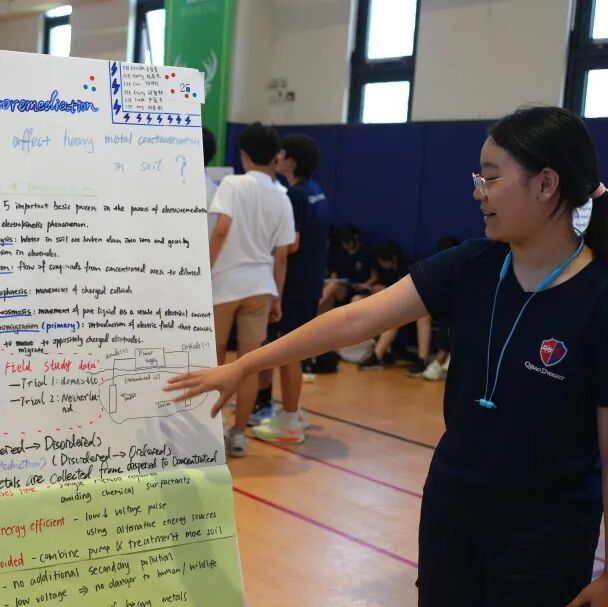 oremediation
25
affect heavy metal contamination
in soil ?
5 important basic process in the process of electroremediation
electrokinetic phenomenon.
ysis: Water in soil are broken down into ions and gases by
in electrodes.
ion: flow of compounds from concentrated area to diluted
ophoresis: movement of charged colloids
osmosis: movement of pore liquid as a result of electrical current
omigration (primary): introduction of electric field that causes
to migrate to oppositely charged electrodes.
Field study data
— Trial 1: domestic
— Trial 2: Netherla
nd
anode (+)
Power supply
cathode (-)
ered → Disordered)
(Disordered → Ordered)
etals are collected from dispersed to concentrated
avoiding chemical surfactants
energy efficient - low ↓ voltage pulse
using alternative energy sources
oided - combine pump & treatment more soil
- no additional secondary pollution
- low voltage ⇒ no danger to human/wildlife
of heavy metals
QIBAO DWIGHT